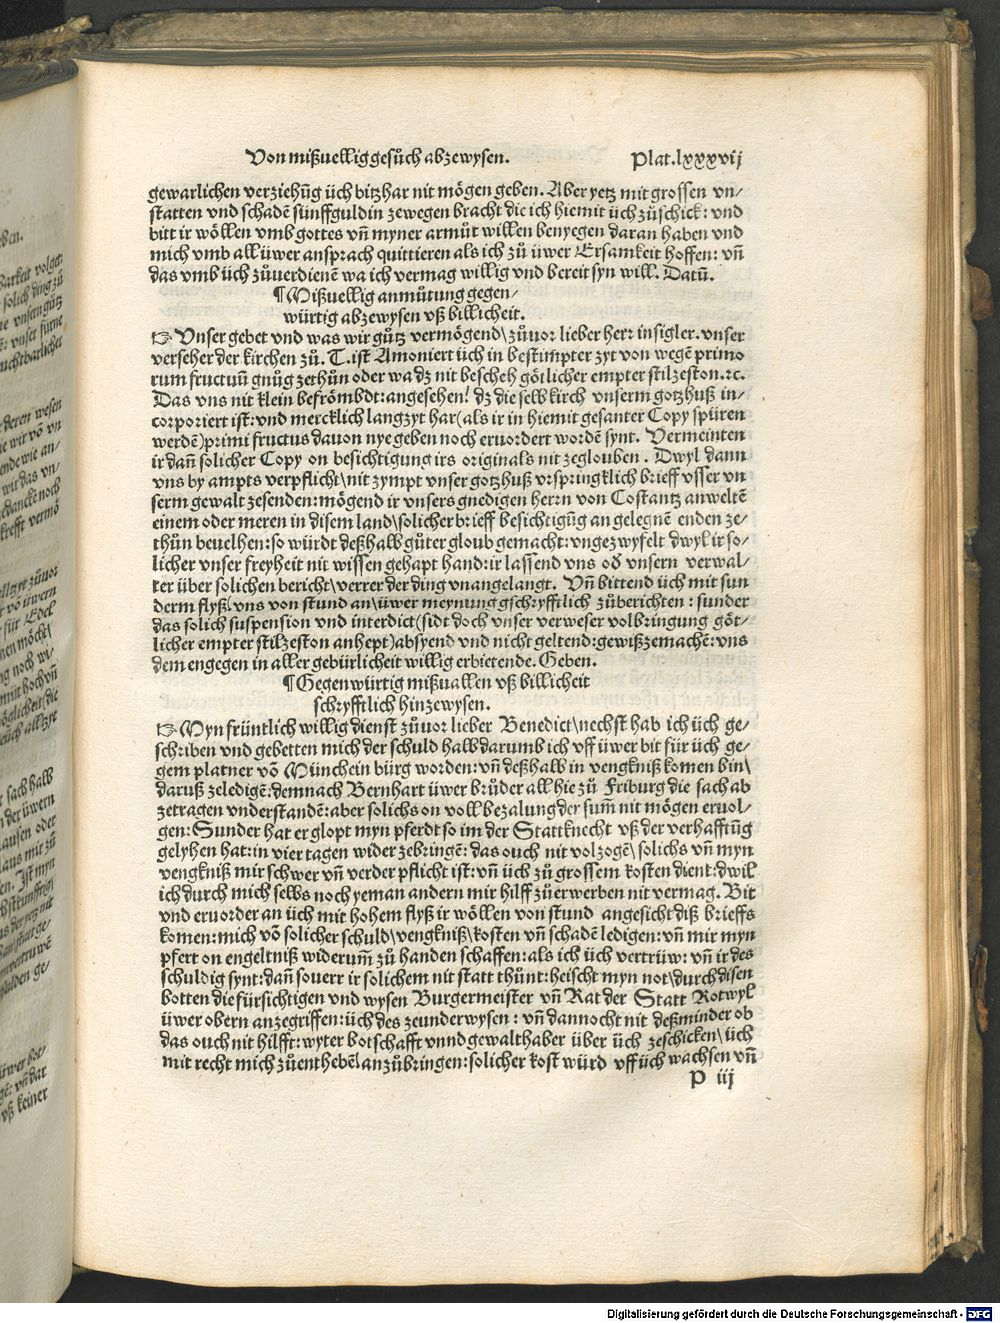 Von mißuellig gesůch abzewysen. Plat.lxxxvij
gewarlichen verziehūg üch bitzhar nit mögen geben. Aber yetz mit grossen vn⸗
statten vnd schadē fünff guldin zewegen bracht die ich hiemit üch zůschick: vnd
bitt ir wöllen vmb gottes vn̄ myner armůt willen benyegen daran haben vnd
mich vmb all üwer ansprach quittieren als ich zů üwer Ersamkeit hoffen: vn̄
das vmb üch zůuerdienē wa ich vermag willig vnd bereit syn will. Datū.
¶ Mißuellig anmůtung gegen⸗
würtig abzewysen vß billicheit.
☞ Vnser gebet vnd was wir gůtz vermögend\ zůuor lieber herr insigler. vnser
verseher der kirchen zů. T. ist Amoniert üch in bestimpter zyt von wegē primo
rum fructuū gnůg zethůn oder wa dz nit bescheh götlicher empter stilzeston. ꝛc.
Das vns nit klein befrömbdt: angesehen! dz die selb kirch vnserm gotzhuß in⸗
corporiert ist: vnd mercklich lang zyt har (als ir in hiemit gesanter Copy spüren
werdē) primi fructus dauon nye geben noch eruordert wordē synt. Vermeinten
ir dañ solicher Copy on besichtigung irs originals nit zeglouben. Dwyl dann
vns by ampts verpflicht\ nit zympt vnser gotzhuß vrspringklich brieff vsser vn
serm gewalt zesenden: mögend ir vnsers gnedigen herrn von Costantz anweltē
einem oder meren in disem land\ solicher brieff besichtigūg an gelegnē enden ze⸗
thůn beuelhen: so würdt deßhalb gůter gloub gemacht: vngezwyfelt dwyl ir so⸗
licher vnser freyheit nit wissen gehapt hand: ir lassend vns od̓ vnsern verwal⸗
ter über solichen bericht\ verrer der ding vnangelangt. Vn̄ bittend üch mit sun
derm flyß\ vns von stund an\ üwer meynung gschryfftlich zůberichten: sunder
das solich suspension vnd interdict (sidt doch vnser verweser volbringung göt⸗
licher empter stilzeston anhept) absyend vnd nicht geltend: gewiß zemachē: vns
dem engegen in aller gebürlicheit willig erbietende. Geben.
¶ Gegenwürtig mißuallen vß billicheit
schryfftlich hinzewysen.
☞ Myn früntlich willig dienst zůuor lieber Benedict\ nechst hab ich üch ge⸗
schriben vnd gebetten mich der schuld halb darumb ich vff üwer bit für üch ge⸗
gem platner vō München bürg worden: vn̄ deßhalb in vengkniß komen bin\
daruß zeledigē: demnach Bernhart üwer brůder all hie zů Friburg die sach ab
zetragen vnderstandē: aber solichs on voll bezalung der sum̄ nit mögen eruol⸗
gen: Sunder hat er glopt myn pferdt so im der Stattknecht vß der verhafftūg
gelyhen hat: in vier tagen wider zebringē: das ouch nit volzogē\ solichs vn̄ myn
vengkniß mir schwer vn̄ verderpflicht ist: vn̄ üch zů grossem kosten dient: dwil
ich durch mich selbs noch yeman andern mir hilff zů erwerben nit vermag. Bit
vnd eruorder an üch mit hohem flyß ir wöllen von stund angesicht diß brieffs
komen: mich vō solicher schuld\ vengkniß\ kosten vn̄ schadē ledigen: vn̄ mir myn
pfert on engeltniß widerum̄ zů handen schaffen: als ich üch vertrüw: vn̄ ir des
schuldig synt: dañ souerr ir solichem nit statt thůnt: heischt myn not\ durch disen
botten die fürsichtigen vnd wysen Burgermeister vn̄ Rat der Statt Rotwyl
üwer obern anzegriffen: üch des zeunderwysen: vn̄ dannocht nit deßminder ob
das ouch nit hilfft: wyter botschafft vnnd gewalthaber über üch zeschicken\ üch
mit recht mich zůenthebē\ anzůbringen: solicher kost würd vff üch wachsen vn̄
P iij
Digitalisierung gefördert durch die Deutsche Forschungsgemeinschaft - DFG